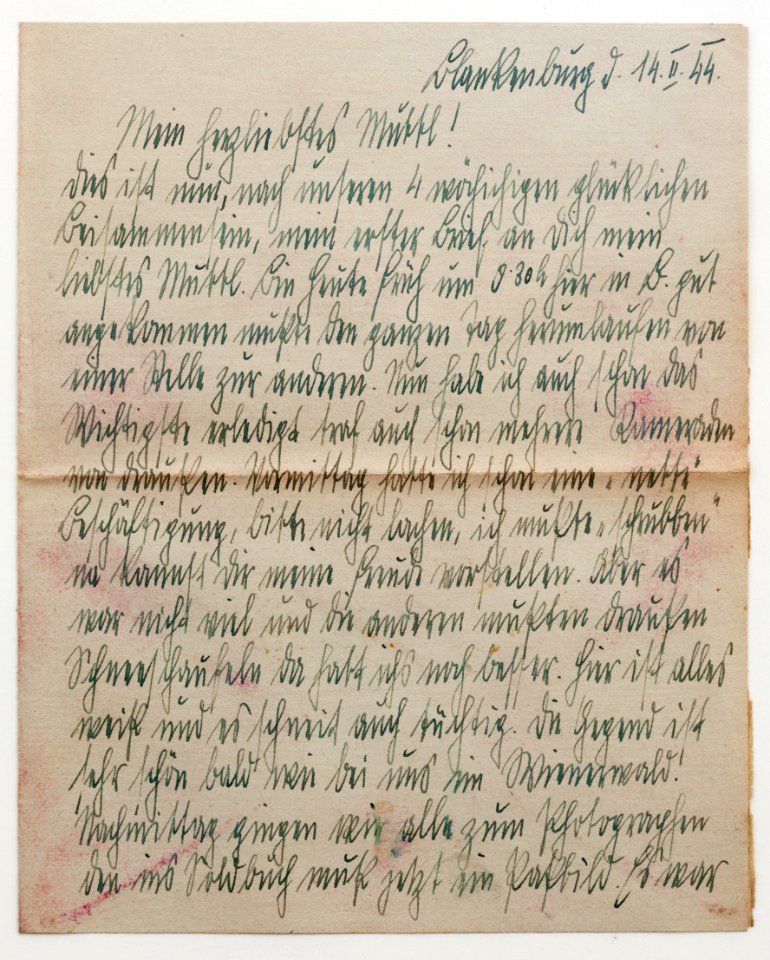 Blankenburg d. 14.II.44.
Mein herzliebstes Muttl!
Dies ist nun, nach unseren 4 wöchichigen glücklichen
Beisammensein, mein erster Brief an Dich mein
liebstes Muttl. Bin heute früh um 8.30h hier in B. gut
angekommen mußte den ganzen Tag herumlaufen von
einer Stelle zur anderen. Nun habe ich auch schon das
Wichtigste erledigt traf auch schon mehrere Kameraden
von draußen. Vormittag hatte ich schon eine „nette"
Beschäftigung, bitte nicht lachen, ich mußte „schrubben"
na kannst Dir meine Freude vorstellen. Aber es
war nicht viel und die anderen mußten draußen
Schneeschaufeln da hatt ichs noch besser. Hier ist alles
weiß und es schneit auch tüchtig. Die Gegend ist
sehr schön bald wie bei uns im Wienerwald.
Nachmittag gingen wir alle zum Photographen
den ins Soldbuch muß jetzt ein Paßbild. Es war